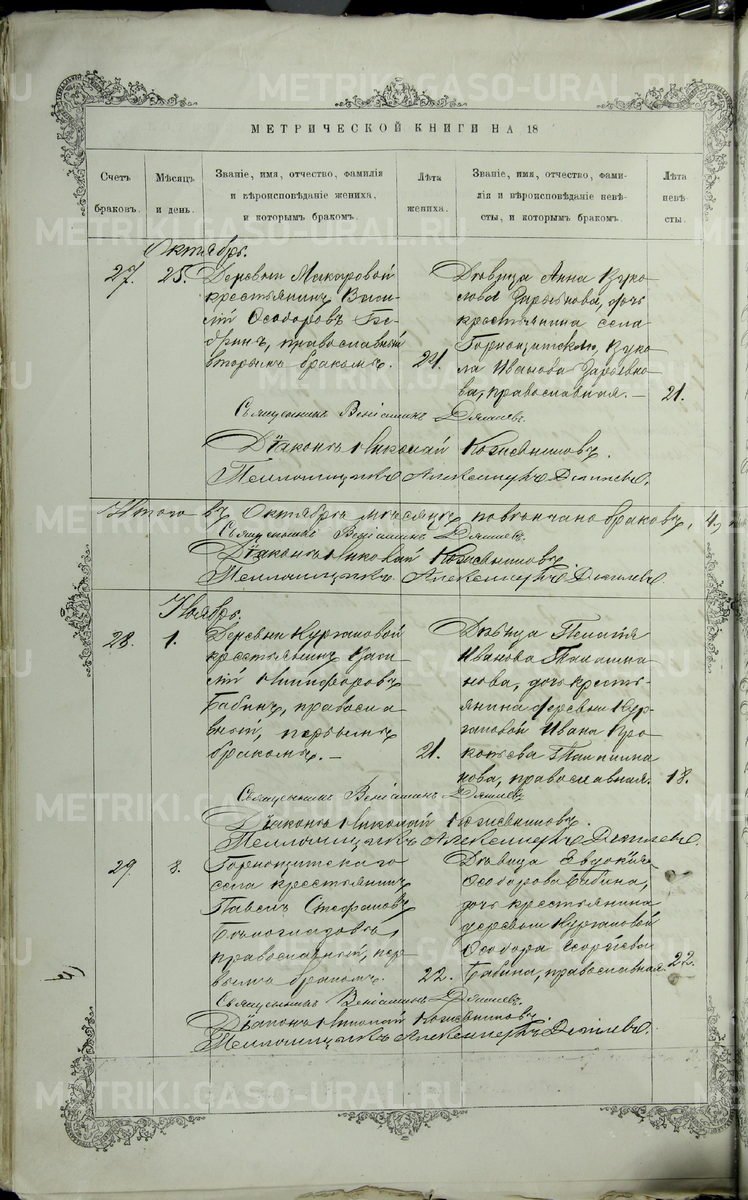 METRIKI.GASO-URAL.RU
МЕТРИЧЕСКОЙ КНИГИ НА 18
Счетъ браковъ.
Мѣсяцъ и день.
Званіе, имя, отчество, фамилія
и вѣроисповѣданіе жениха,
и которымъ бракомъ.
Лѣта жениха.
Званіе, имя, отчество, фами-
лія и вѣроисповѣданіе невѣ-
сты, и которымъ бракомъ.
Лѣта невѣ-
сты.
Октябрь.
27. 25. Деревни Макаровой
крестьянинъ Васи-
лій Ѳеодоровъ
православный
вторымъ бракомъ. 24.
Дѣвица Анна Вуко-
лова дочь
крестьянина села
Горнощитскаго, Вуко-
ла Иванова
православная. 21.
Священникъ Веніаминъ
Діаконъ Николай Кожевниковъ.
Псаломщикъ Александръ
Итого въ Октябрѣ мѣсяцѣ повѣнчано браковъ, 4,
Священникъ Веніаминъ
Діаконъ Николай Кожевниковъ.
Псаломщикъ Александръ
Ноябрь.
28. 1. Деревни Кургановой
крестьянинъ Васи-
лій Никифоровъ
Бабинъ, правосла-
вный, первымъ
бракомъ. 21.
Дѣвица Пелагія
Иванова Талашма-
нова, дочь кресть-
янина деревни Кур-
гановой Ивана Про-
копьева Талашма-
нова, православная. 18.
Священникъ Веніаминъ
Діаконъ Николай Кожевниковъ.
Псаломщикъ Александръ
29. 8. Горнощитскаго
села крестьянинъ
Павелъ Стефановъ
Бѣлоглазовъ,
православный, пер-
вымъ бракомъ. 22.
Дѣвица Евдокія
Ѳеодорова Бабина,
дочь крестьянина
деревни Кургановой
Ѳеодора Георгіева
Бабина, православная. 22.
Священникъ Веніаминъ
Діаконъ Николай Кожевниковъ.
Псаломщикъ Александръ